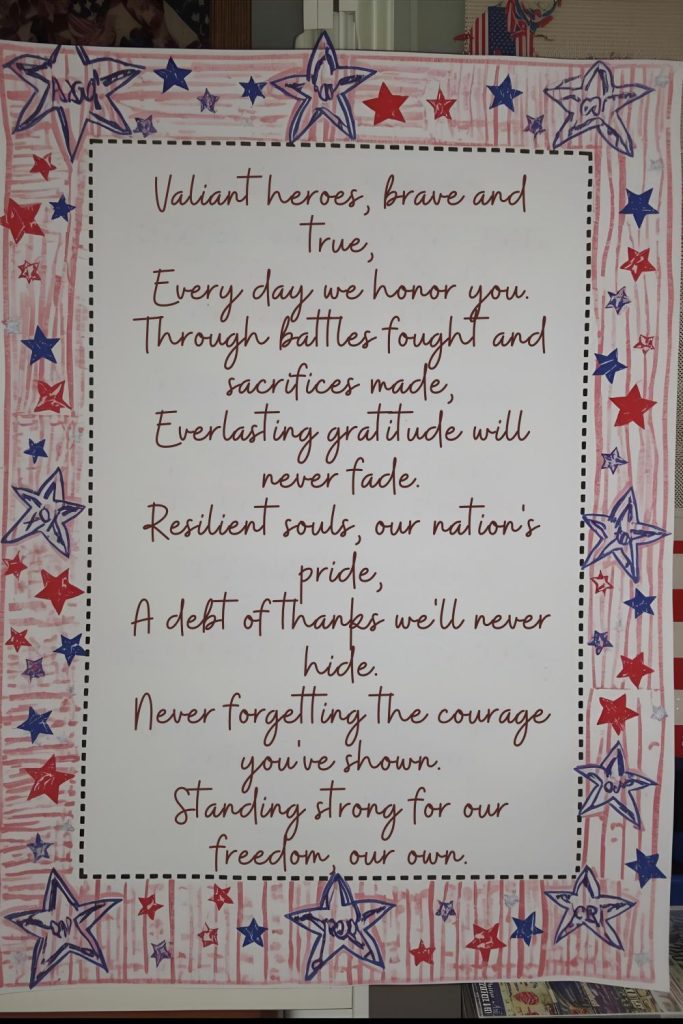 Valiant heroes, brave and
true,
Every day we honor you.
Through battles fought and
sacrifices made,
Everlasting gratitude will
never fade.
Resilient souls, our nation's
pride,
A debt of thanks we'll never
hide.
Never forgetting the courage
you've shown.
Standing strong for our
freedom, our own.